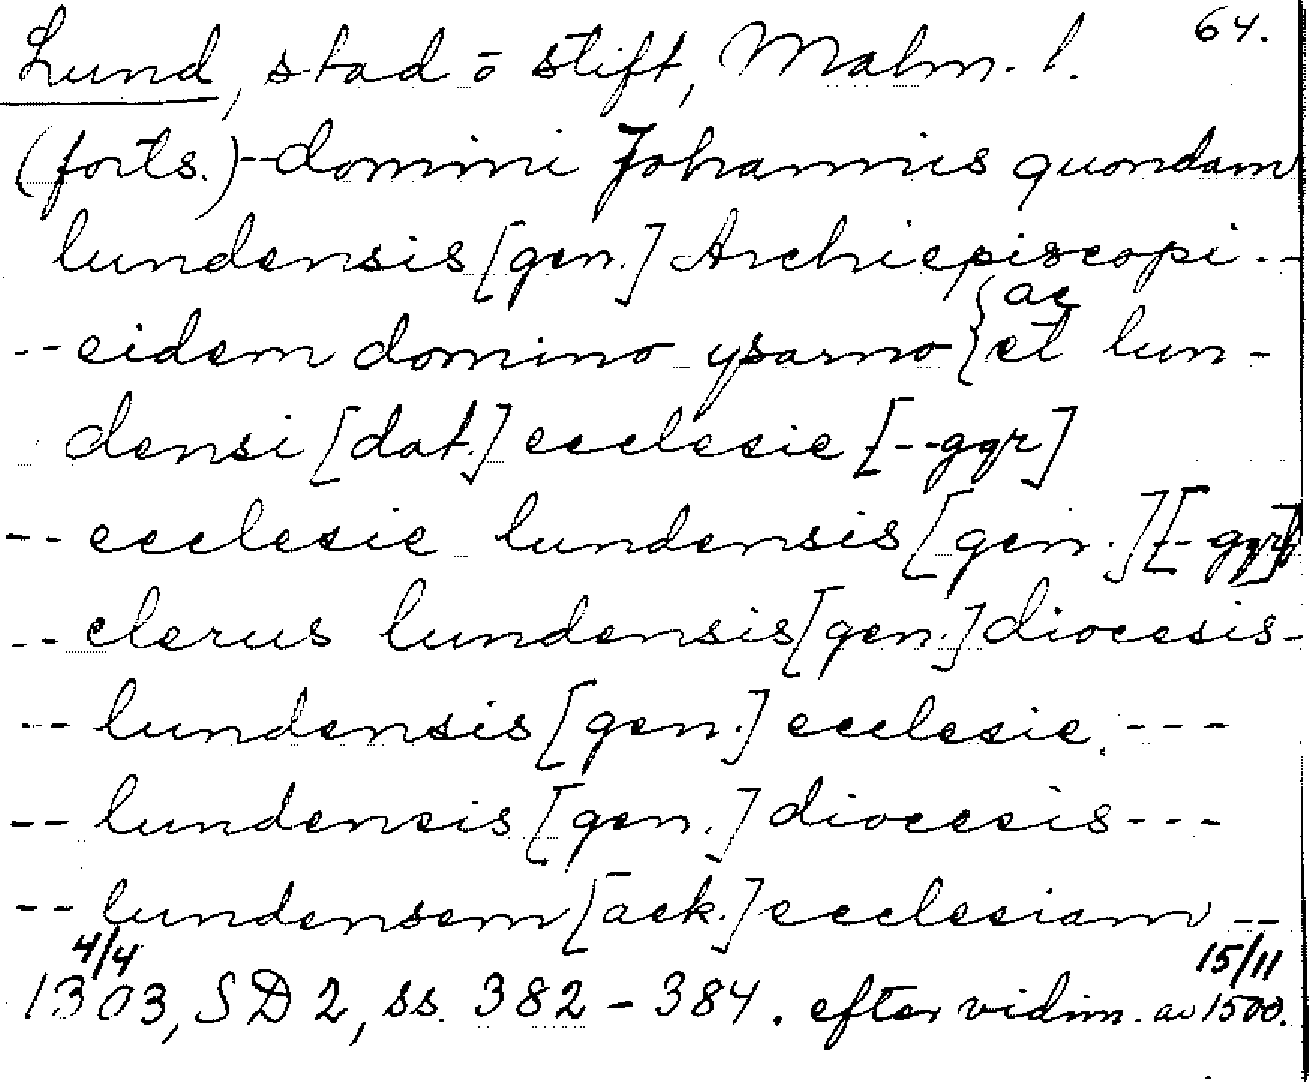 64.
Lund, stad o stift, Malm. l.
(forts.) -- domini Johannis quondam
lundensis [gen.] Archiepiscopi --
-- eidem domino ysarno { ac
et lun-
densi [dat.] ecclesie [--ggr]
-- ecclesie lundensis [gen.] [--ggr]
-- clerus lundensis [gen.] diocesis -
-- lundensis [gen.] ecclesie. ---
-- lundensis [gen.] diocesis ---
-- lundensem [ack.] ecclesiam --
4/4 15/11
1303, SD 2, ss. 382 - 384. efter vidim. av 1500.